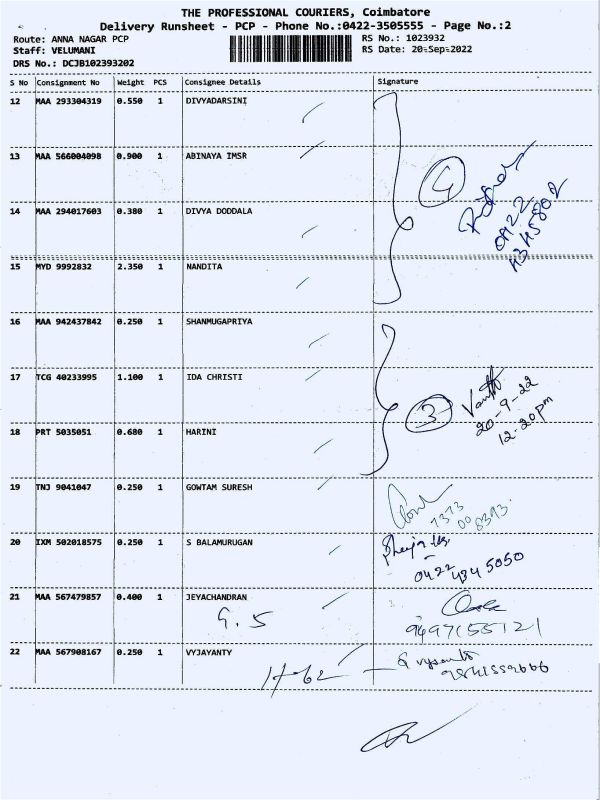 THE PROFESSIONAL COURIERS, Coimbatore
Delivery Runsheet - PCP - Phone No.:0422-3505555 - Page No.:2
Route: ANNA NAGAR PCP
Staff: VELUMANI
DRS No.: DCJB102393202
RS No.: 1023932
RS Date: 20-Sep-2022
S No Consignment No Weight PCS Consignee Details Signature
12 MAA 293304319 0.550 1 DIVYADARSINI
13 MAA 566004098 0.900 1 ABINAYA IMSR
4
0422
4345802
14 MAA 294017603 0.380 1 DIVYA DODDALA
15 MYD 9992832 2.350 1 NANDITA
16 MAA 942437842 0.250 1 SHANMUGAPRIYA
17 TCG 40233995 1.100 1 IDA CHRISTI
3
20-9-22
12.20pm
18 PRT 5035051 0.680 1 HARINI
19 TNJ 9041047 0.250 1 GOWTAM SURESH
7373
008393
20 IXM 502018575 0.250 1 S BALAMURUGAN
0422 4345050
21 MAA 567479857 0.400 1 JEYACHANDRAN
G.5
9497155121
22 MAA 567908167 0.250 1 VYJAYANTY